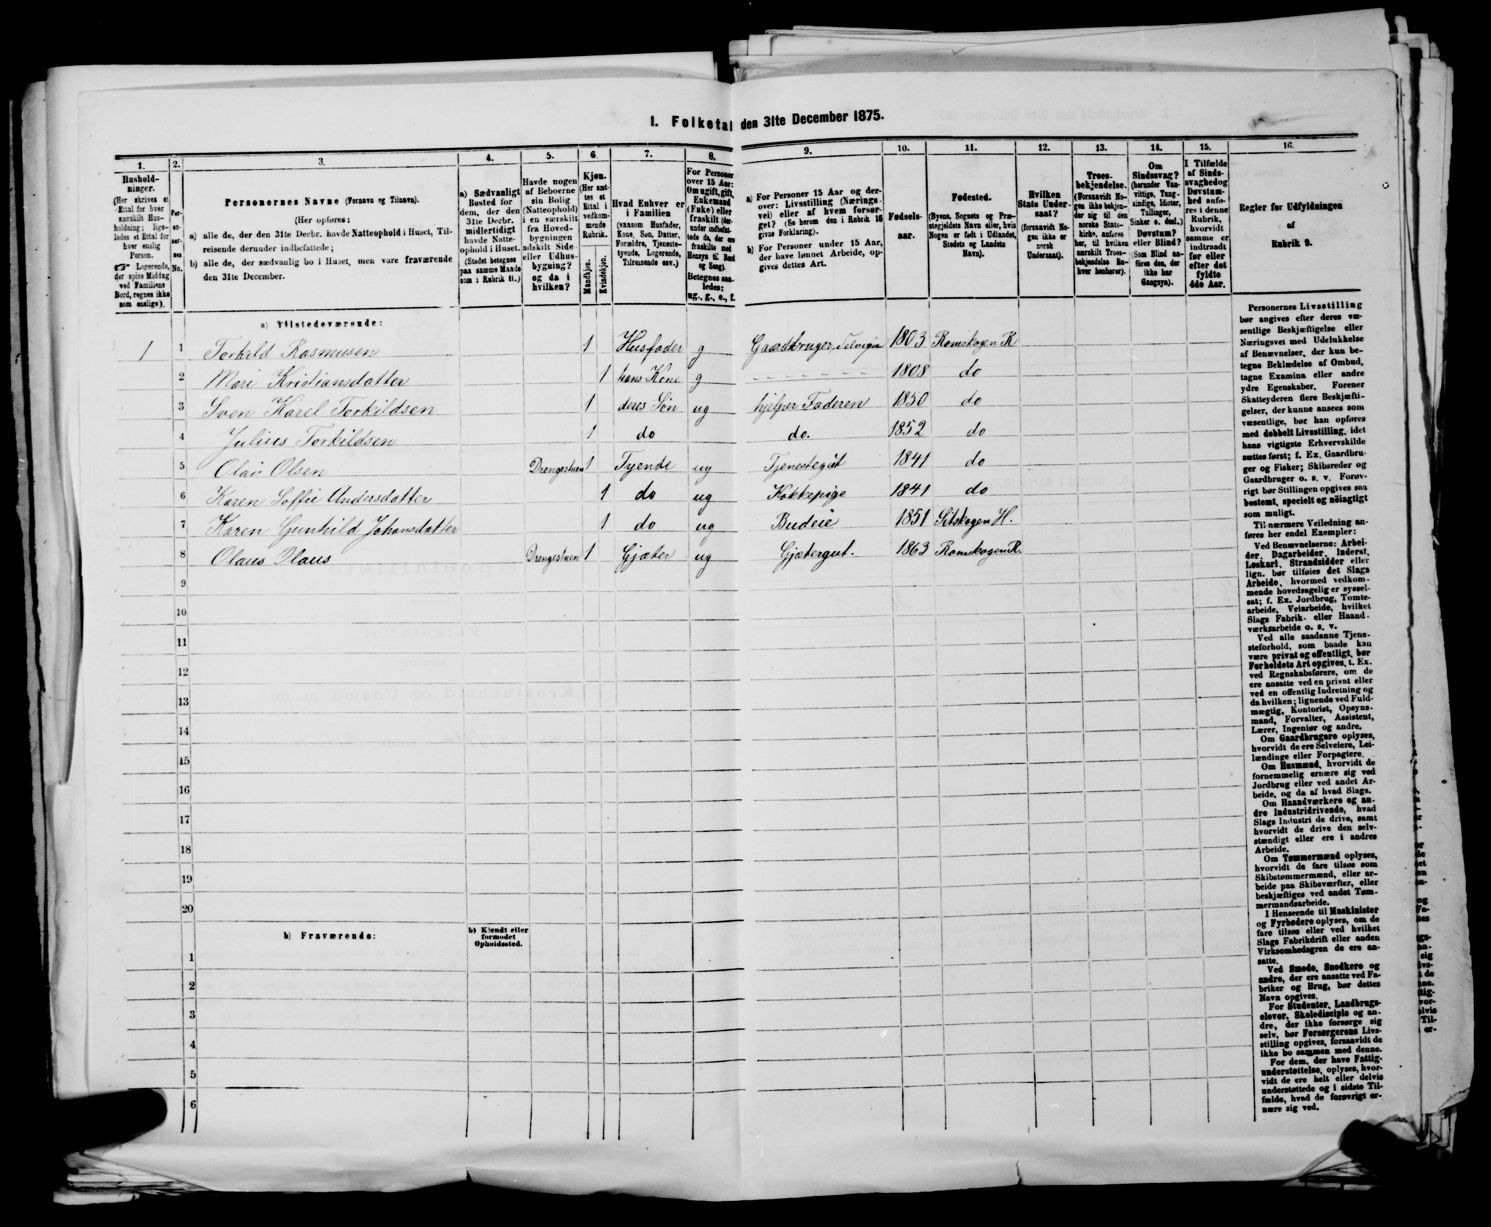 1. Folketal den 31te December 1875.
1. 2. 3. 4. 5. 6. 7. 8. 9. 10. 11. 12. 13. 14. 15. 16.
Hushold-
ninger.
(Her skrives et
Ettal for hver
særskilt Hus-
holdning; lige-
ledes et Ettal for
hver enslig
Person.
☞ Logerende,
der spise Middag
ved Familiens
Bord, regnes ikke
som enslige).
Per-
so-
ner-
nes
No.
Personernes Navne (Fornavn og Tilnavn).
(Her opføres:
a) alle de, der den 31te Decbr. havde Natteophold i Huset, Til-
reisende derunder indbefattede;
b) alle de, der sædvanlig bo i Huset, men vare fraværende
den 31te December.
a) Sædvanligt
Bosted for
dem, der den
31te Decbr.
midlertidigt
havde Natte-
ophold i Huset.
(Stedet betegnes
paa samme Maade
som i Rubrik 11.)
Havde nogen
af Beboerne
sin Bolig
(Natteophold)
i en særskilt
fra Hoved-
bygningen
adskilt Side-
eller Udhus-
bygning?
og da i
hvilken?
Kjøn.
(Her sæt-
tes et
Ettal i
vedkom-
mende
Rubrik.
Mandkjøn.
Kvindekjøn.
Hvad Enhver er
i Familien
(saasom Husfader,
Kone, Søn, Datter,
Forældre, Tjeneste-
tyende, Logerende,
Tilreisende osv.)
For Personer
over 15 Aar:
Om ugift, gift,
Enkemand
(Enke) eller
fraskilt (der-
under indbefat-
tede de, der ere
fraskilte med
Hensyn til Bord
og Seng).
Betegnes saa-
ledes:
ug., g., e., f.
a) For Personer 15 Aar og der-
over: Livsstilling (Nærings-
vei) eller af hvem forsør-
get? (Se herom den i Rubrik 16
givne Forklaring).
b) For Personer under 15 Aar,
der have lønnet Arbeide, op-
gives dettes Art.
Fødsels-
aar.
Fødested.
(Byens, Sognets og Præ-
stegjeldets Navn eller, hvis
Nogen er født i Udlandet,
Stedets og Landets
Navn).
Hvilken
Stats Under-
saat?
(forsaavidt No-
gen ikke er
norsk
Undersaat).
Troes-
bekjendelse.
(Forsaavidt No-
gen ikke bekjen-
der sig til den
norske Stats-
kirke, anføres
her, til hvilken
særskilt Troes-
bekjendelse En-
hver henhører).
Om
Sindssvag?
(herunder Van-
vittige, Tung-
sindige, Idioter,
Tullinger,
Sinker o. desl.)
Døvstum?
eller Blind?
(Som Blind an-
føres den, der
ikke har
Gangsyn).
I Tilfælde
af Sinds-
svaghed og
Døvstum-
hed anfø-
res i denne
Rubrik,
hvorvidt
samme er
indtraadt
før eller
efter det
fyldte
4de Aar.
Regler for Udfyldningen
af
Rubrik 9.
a) Tilstedeværende:
1 1 Torkild Rasmusen 1 Husfader g Gaardbruger, Selveier 1803 Romskogen R
2 Mari Kristiansdatter 1 hans Kone g 1808 do
3 Sven Karel Torkildsen 1 deres Søn ug hjelper Faderen 1850 do
4 Julius Torkildsen 1 do do. 1852 do
5 Olai Olsen Drengestuen 1 Tyende ug Tjenestegut 1841 do
6 Karen Soffie Andersdatter 1 do ug Kokkepige 1841 do
7 Karen Gunhild Johansdatter 1 do ug Budeie 1851 Sitskogen H.
8 Olaus Olaus Drengestuen 1 Gjæter ug Gjætergut. 1863 Romskogen R.
9
10
11
12
13
14
15
16
17
18
19
20
b) Fraværende:
b) Kjendt eller
formodet
Opholdssted.
1
2
3
4
5
6
Personernes Livsstilling
bør angives efter deres væ-
sentlige Beskjæftigelse eller
Næringsvei med Udelukkelse
af Benævnelser, der kun be-
tegne Beklædelse af Ombud,
tagne Examina eller andre
ydre Egenskaber. Forener
Skatteyderen flere Beskjæfti-
gelser, der kunne ansees som
væsentlige, bør han opføres
med dobbelt Livsstilling, idet
hans vigtigste Erhvervskilde
sættes først; f. Ex. Gaardbru-
ger og Fisker; Skibsreder og
Gaardbruger o. s. v. Forøv-
rigt bør Stillingen opgives saa
bestemt, specielt og nøiagtigt
som muligt.
Til nærmere Veiledning an-
føres her endel Exempler:
Ved Benævnelserne: Arbei-
der, Dagarbeider, Inderst,
Løskarl, Strandsidder eller
lign. bør tilføies det Slags
Arbeide, hvormed vedkom-
mende hovedsagelig er syssel-
sat; f. Ex. Jordbrug, Tomte-
arbeide, Veiarbeide, hvilket
Slags Fabrik- eller Haand-
værksarbeide o. s. v.
Ved alle saadanne Tjene-
steforhold, som baade kan
være privat og offentligt, bør
Forholdets Art opgives, t. Ex.
ved Regnskabsførere, om de
ere ansatte ved en privat eller
ved en offentlig Indretning og
da hvilken; lignende ved Fuld-
mægtig, Kontorist, Opsyns-
mand, Forvalter, Assistent,
Lærer, Ingeniør og andre.
Om Gaardbrugere oplyses,
hvorvidt de ere Selveiere, Lei-
lændinge eller Forpagtere.
Om Husmænd, hvorvidt de
fornemmelig ernære sig ved
Jordbrug eller ved andet Ar-
beide, og da af hvad Slags.
Om Haandværkere og an-
dre Industridrivende, hvad
Slags Industri de drive, samt
hvorvidt de drive den selv-
stændigt eller ere i andres
Arbeide.
Om Tømmermænd oplyses,
hvorvidt de fare tilsøs som
Skibstømmermænd, eller ar-
beide paa Skibsværfter, eller
beskjæftiges ved andet Tøm-
mermandsarbeide.
I Henseende til Maskinister
og Fyrbødere oplyses, om de
fare tilsøs eller ved hvilket
Slags Fabrikdrift eller anden
Virksomhedsgren de ere an-
satte.
Ved Smede, Snedkere og
andre, der ere ansatte ved Fa-
briker og Brug, bør dettes
Navn opgives.
For Studenter, Landbrugs-
elever, Skoledisciple og an-
dre, der ikke forsørge sig
selv, bør Forsørgerens Livs-
stilling opgives, forsaavidt de
ikke bo sammen med denne.
For dem, der have Fattig-
understøttelse, oplyses, hvor-
vidt de ere helt eller delvis
understøttede og i sidste Til-
fælde, hvad de forøvrigt er-
nære sig ved.